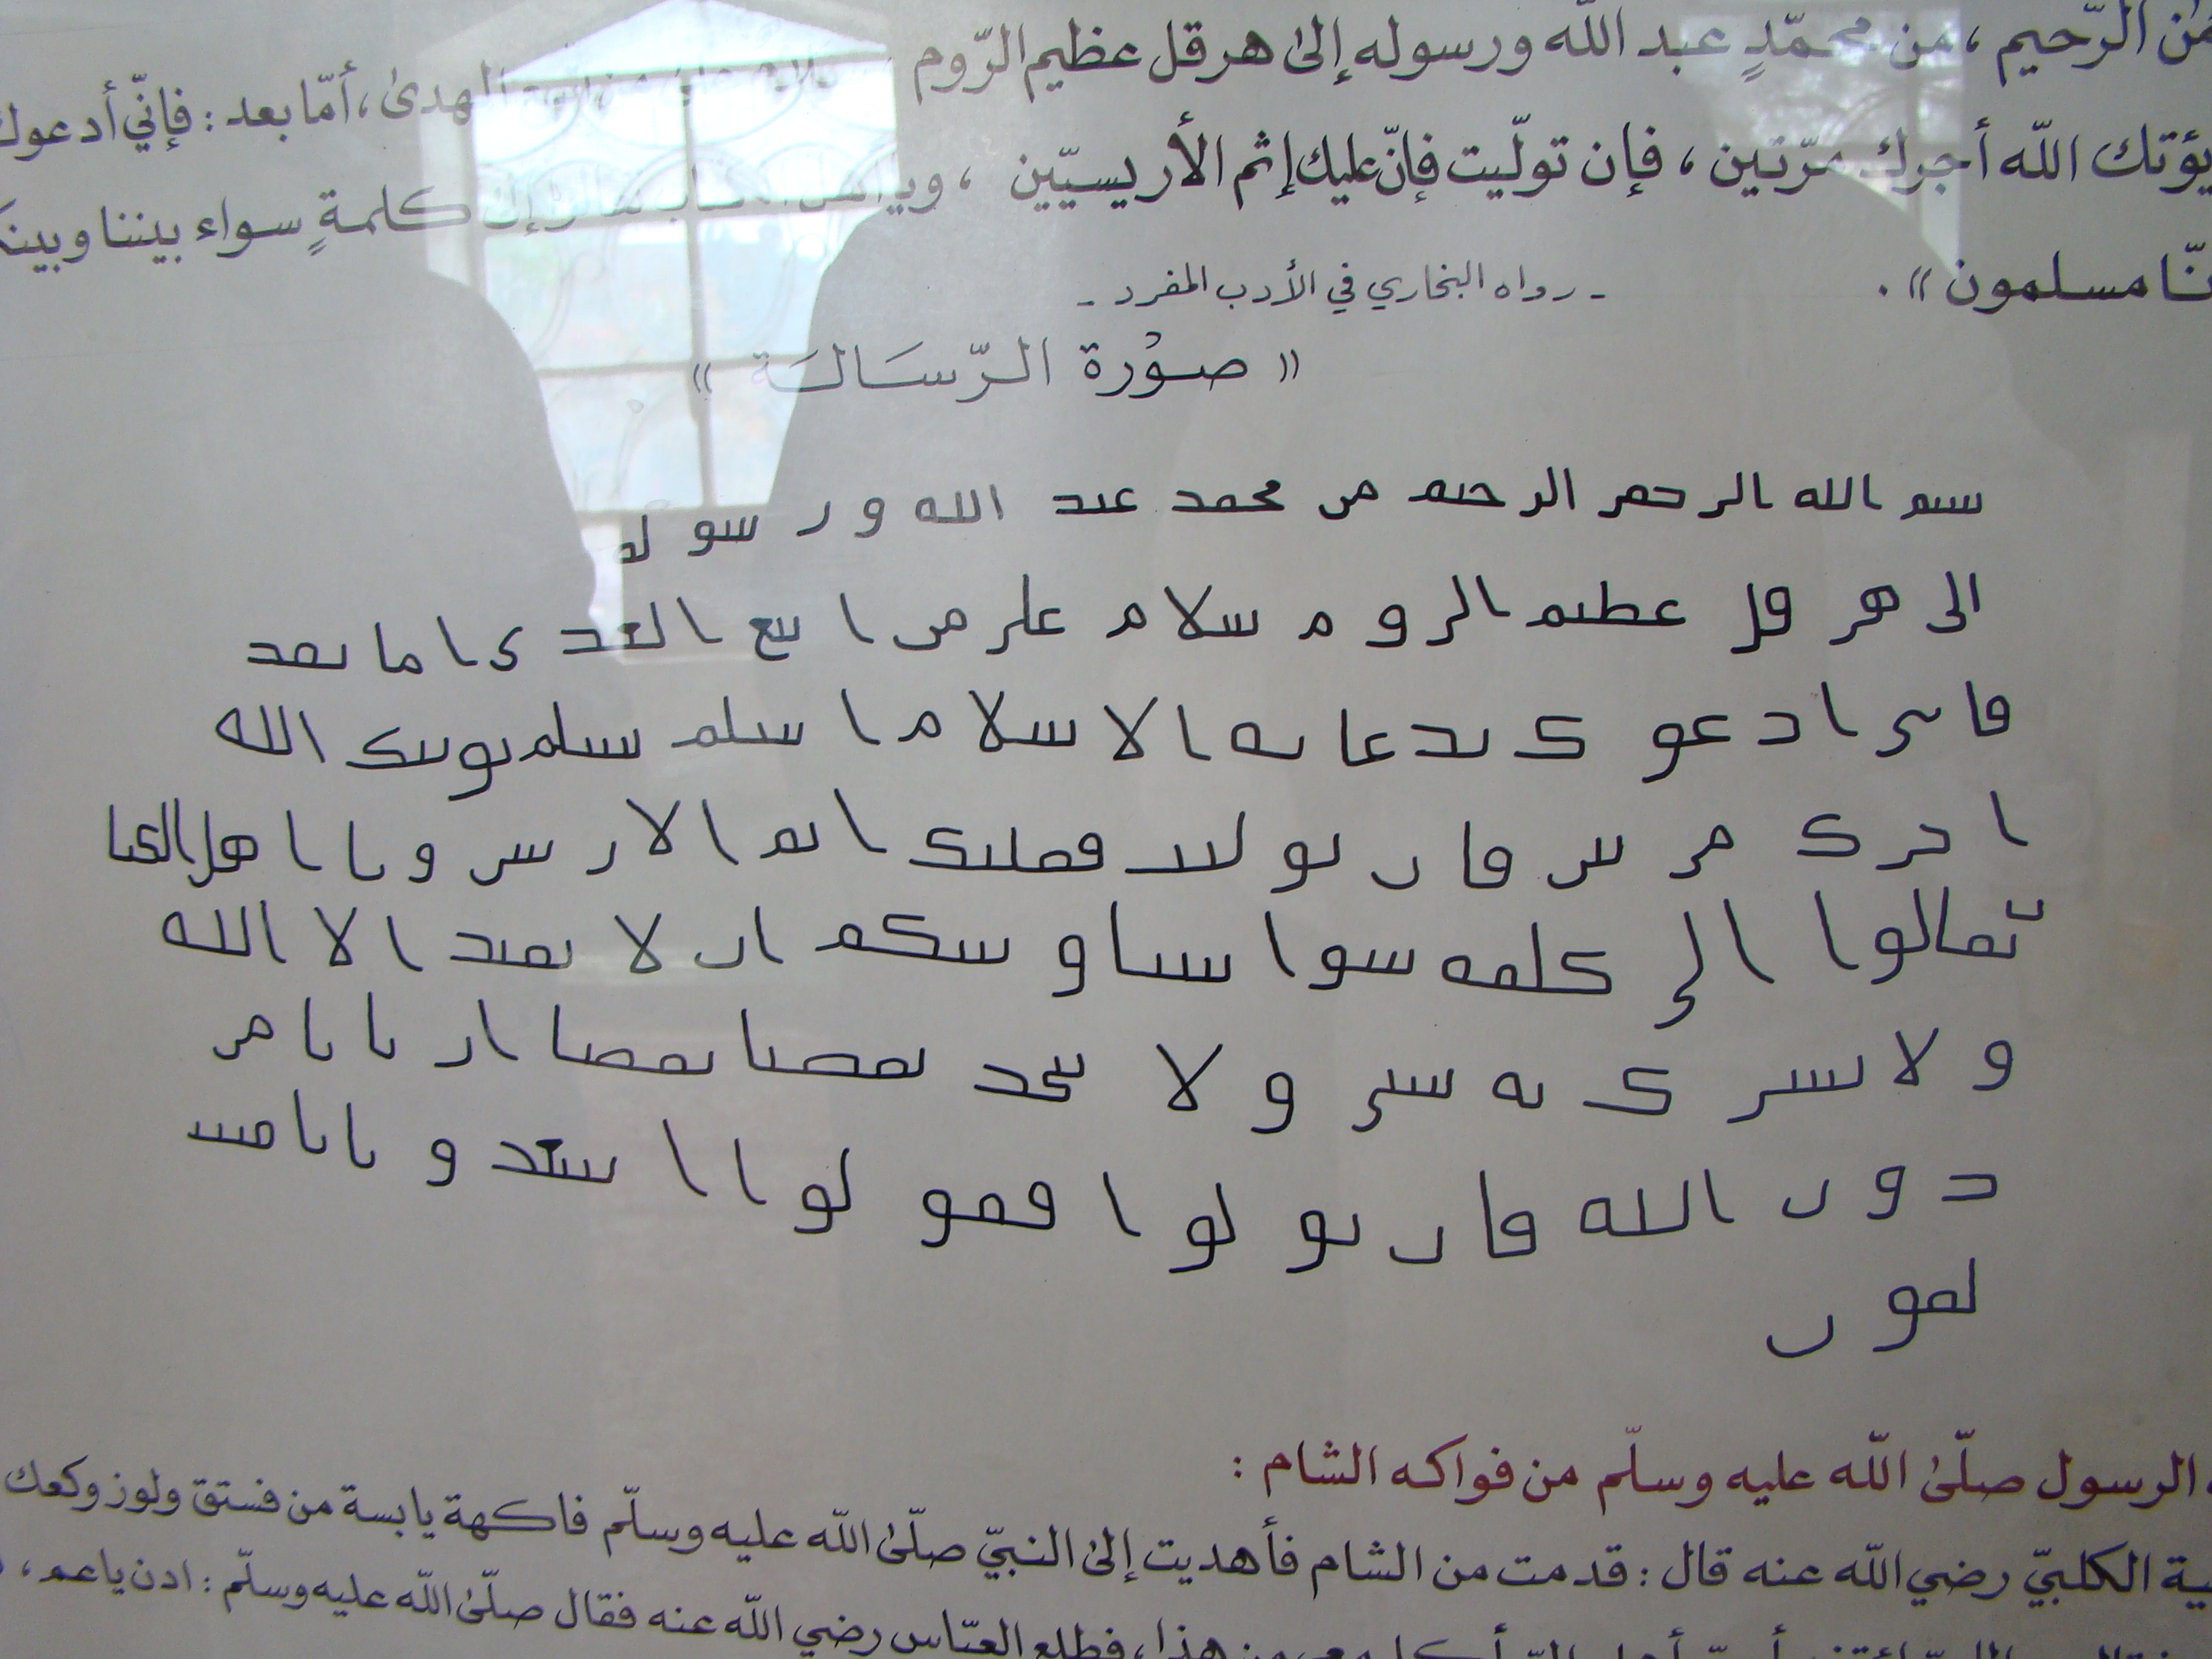 الرّحيم ، من محمّدٍ عبد اللّه ورسوله إلىٰ هرقل عظيم الرّوم الهدىٰ ، أمّا بعد : فإنّي أدعوك
يؤتك اللّه أجرك مرّتين ، فإن تولّيت فإنّ عليك إثم الأريسيّين ، كلمةٍ سواء بيننا وبينكم
مسلمون » .
- رواه البخاري في الأدب المفرد -
« صوُرة الرّسَالَة »
ٮسم الله الرحمں الرحٮم مں محمد عٮد الله ورسوله
الى هرٯل عطٮم الروم سلام على مں اٮٮع الهدى اما ٮعد
ڡاٮى ادعوک ٮدعاٮه الاسلام اسلم ٮسلم ٮوٮٮک الله
احرک مرٮٮں ڡاں ٮولٮٮ ڡعلٮک اٮم الارٮسٮں وٮا اهل الکٮا
تعالوا الى کلمه سوا ٮٮٮٮا وٮٮٮکم اں لا ٮعٮد الا الله
ولا ٮسرک ٮه سٮى ولا ٮٮحد ٮعصٮا ٮعصا ارٮاٮا مں
دوں الله ڡاں ٮولوا ڡٯولوا اسهدوا ٮاٮا مس
لموں
الرسول صلّىٰ اللّه عليه وسلّم من فواكه الشام :
الكلبيّ رضي اللّه عنه قال : قدمت من الشام فأهديت إلىٰ النبيّ صلّىٰ اللّه عليه وسلّم فاكهة يابسة من فستق ولوز وكعك
هذا ، فطلع العبّاس رضي اللّه عنه فقال صلّىٰ اللّه عليه وسلّم : ادن يا عم ،